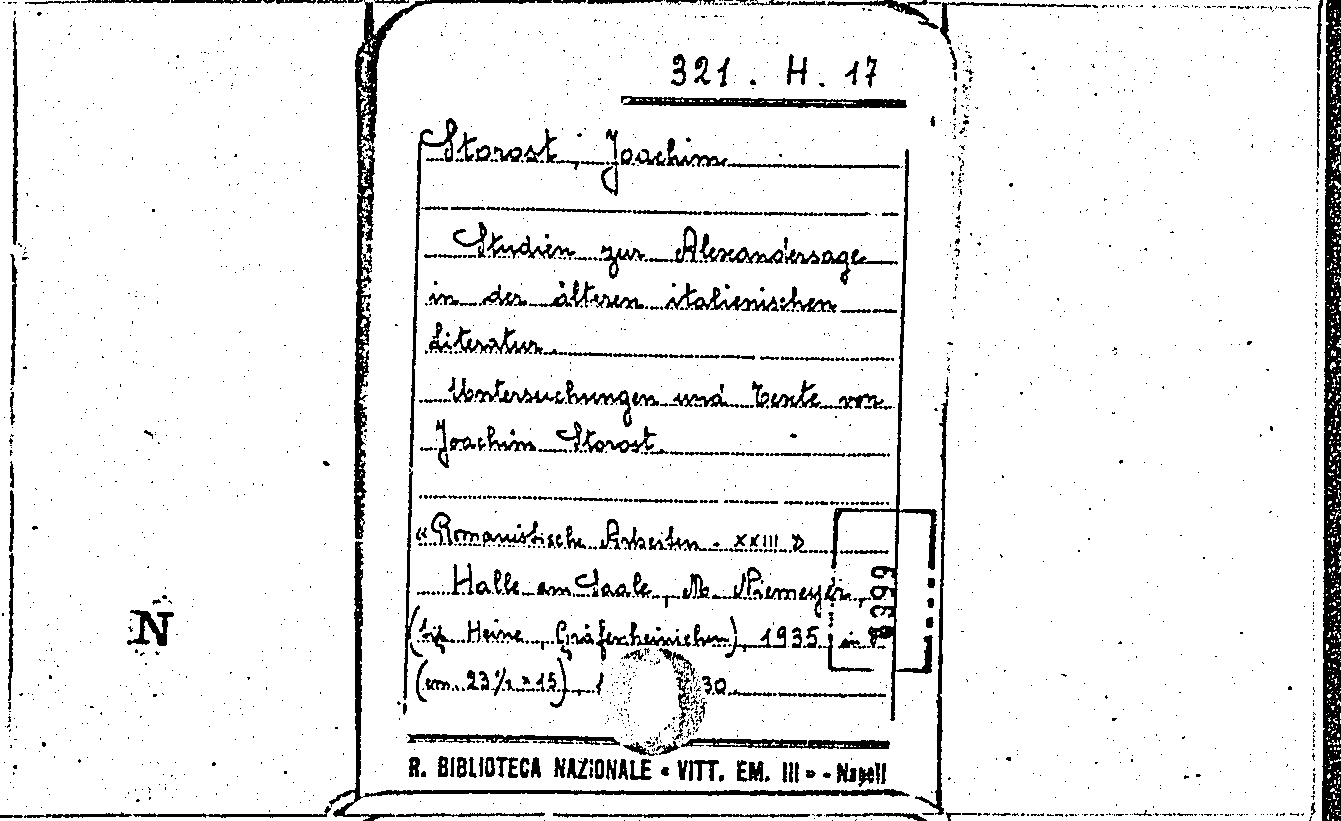 321. H. 17
Storost, Joachim
Studien zur Alexandersage
in der älteren italienischen
Literatur.
Untersuchungen und Texte von
Joachim Storost.
«Romanistische Arbeiten - XXIII»
Halle am Saale, M. Niemeyer,
(tip. Heine, Gräfenheinichen), 1935 in
(cm. 23½ × 15), 30.
8399
N
R. BIBLIOTECA NAZIONALE « VITT. EM. III » - Napoli